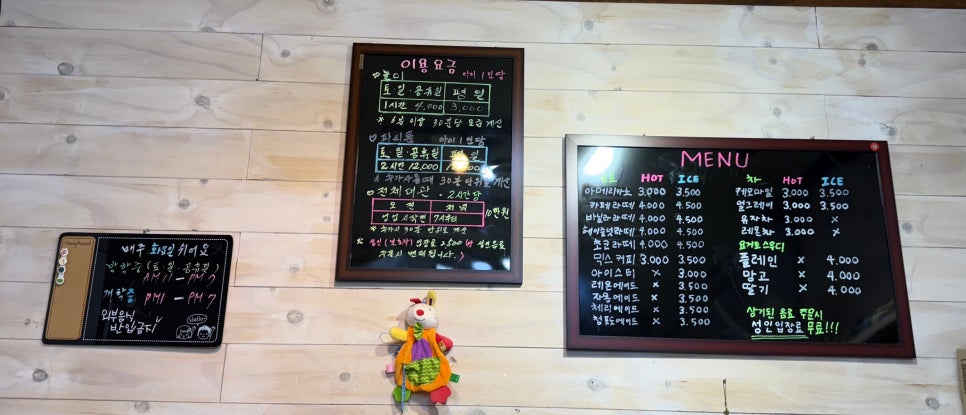 이용요금
♡놀이 아이 1인당
토·일·공휴일 평일
1시간 4.000 3.000
30분당 요금 계산
♡파티룸 아이 1인당
토·일·공휴일 평일
2시간 12,000
30분 단위로 계산
♡전체대관 · 2시간당
오전 저녁
영업시작전 7시부터
10만원
※ 추가시 30분 단위로 계산
※ 성인(보호자) 입장료 2,500
MENU
HOT ICE
아메리카노 3.000 3.500
카페라떼 4.000 4.500
바닐라라떼 4.000 4.500
헤이즐넛라떼 4.000 4.500
초코라떼 4.000 4.500
믹스커피 3.000 3.500
아이스티 × 3.000
레몬에이드 × 3.500
자몽에이드 × 3.500
체리에이드 × 3.500
청포도에이드 × 3.500
차 HOT ICE
케모마일 3,000 3,500
얼그레이 3,000 3,500
유자차 3,000 ×
레몬차 3,000 ×
요거트스무디
플레인 × 4.000
망고 × 4.000
딸기 × 4.000
상기된 음료 주문시
성인입장료 무료!!!
매주 화요일 쉬어요
방학중 (토·일·공휴일)
AM 11 - PM 7
개학중 PM1 - PM 7
외부음식
반입금지
Hello~